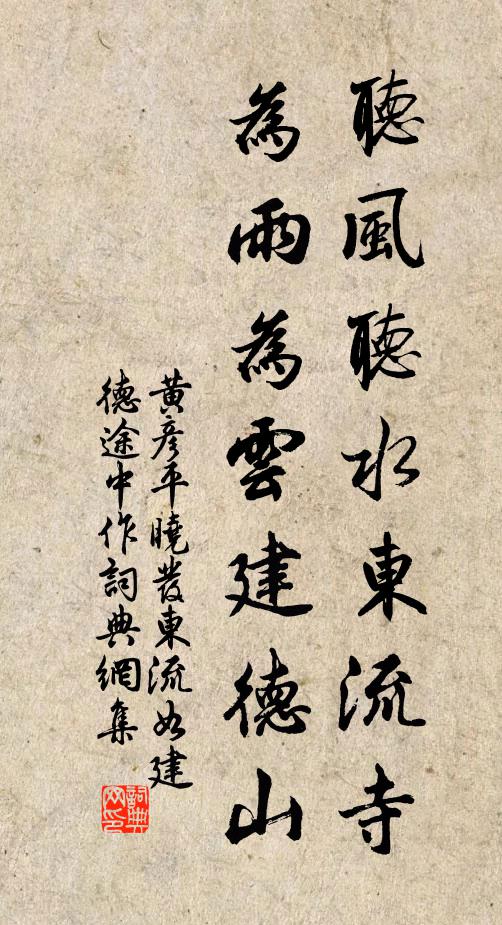 聽風聽水東流寺
為雨為雲建德山
黃彥平曉發東流如建
德途中作詞典網集
詞典网印